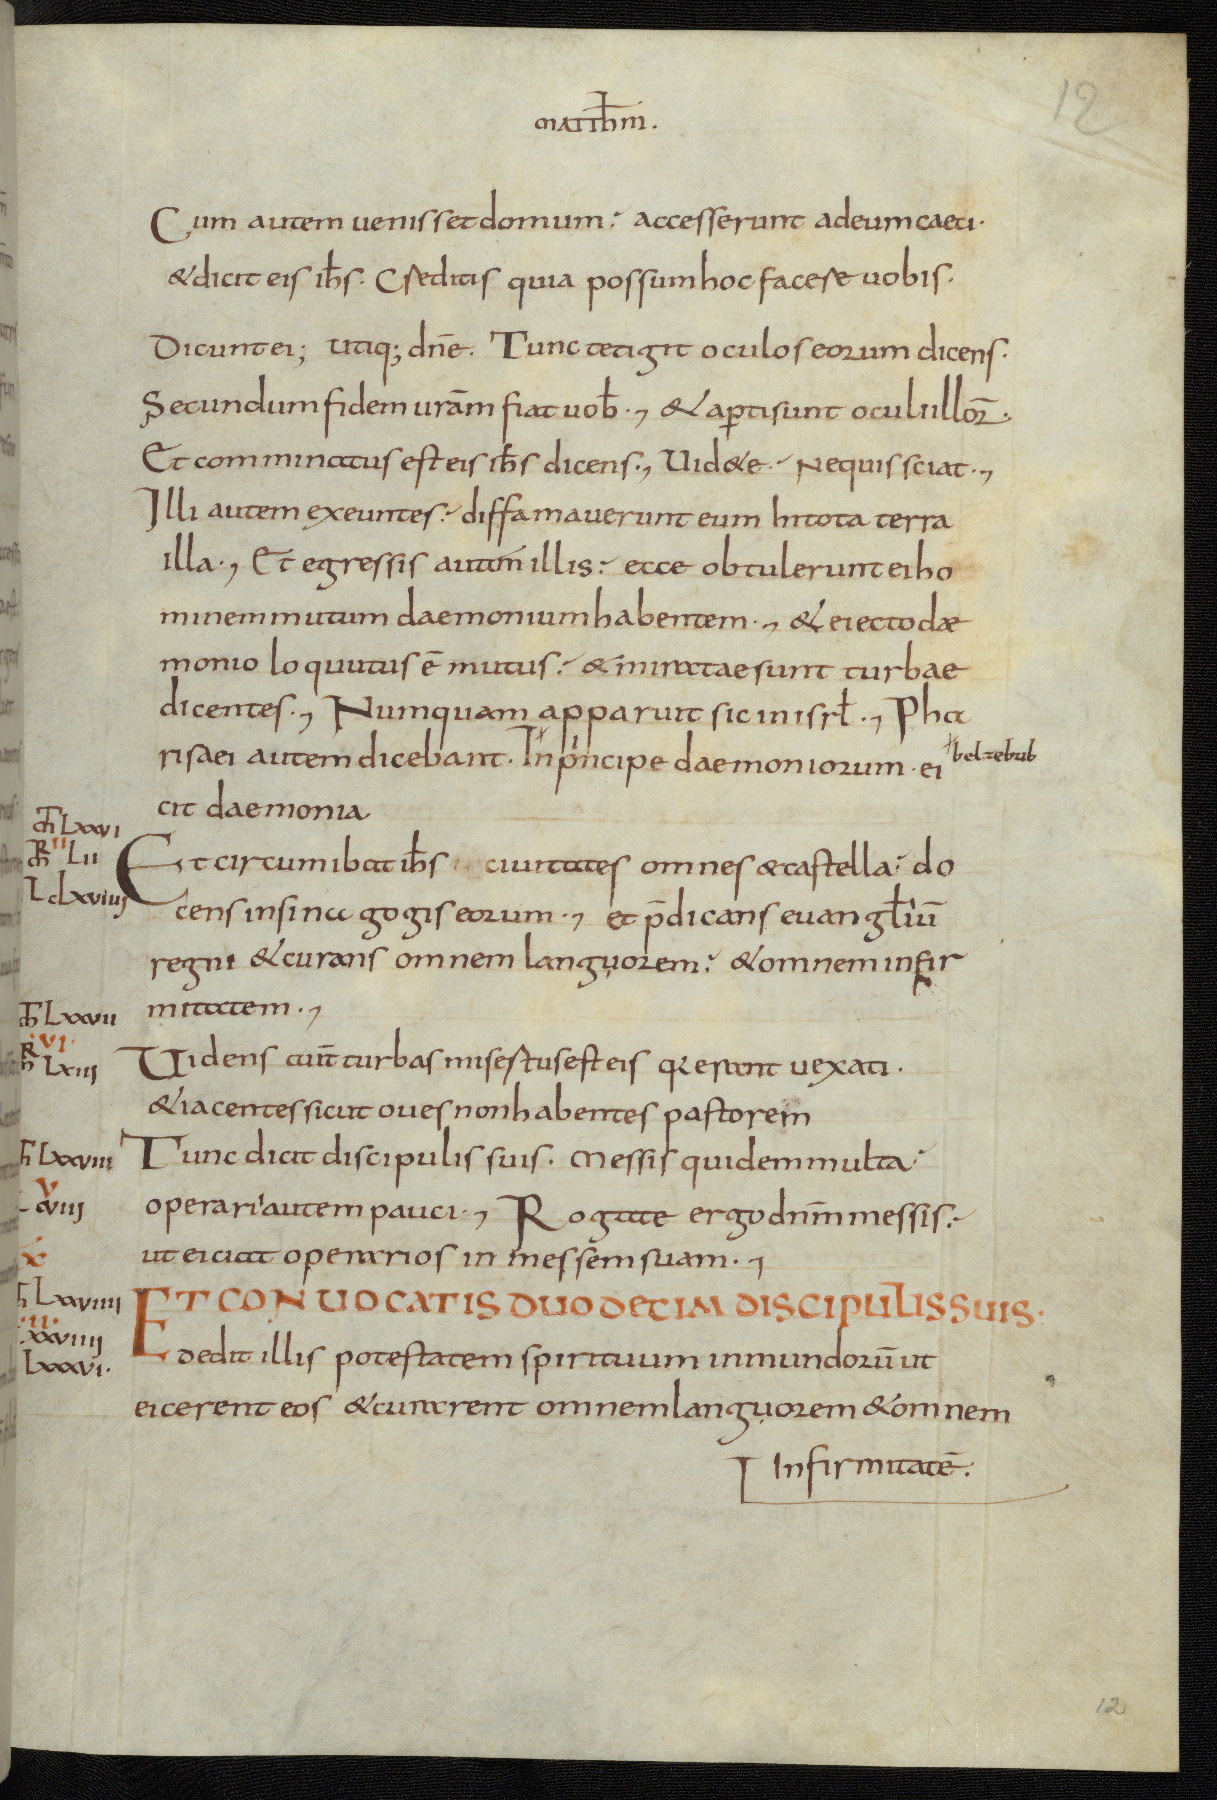 12
matthm.
Cum autem uenisset domum: accesserunt ad eum caeci.
& dicit eis ih̄s. Creditis quia possum hoc facere uobis.
Dicunt ei; utiq; dn̄e. Tunc tetigit oculos eorum dicens.
Secundum fidem urām fiat uob̄., & aꝑti sunt oculi illoꝝ.
Et comminatus est eis ih̄s dicens., Uid&e. Ne quis sciat.,
Illi autem exeuntes: diffamauerunt eum in tota terra
illa., Et egressis autem illis: ecce obtulerunt ei ho
minem mutum daemonium habentem., & eiecto dæ
monio loquutus ē mutus: & miratae sunt turbae
dicentes., Numquam apparuit sic in isrł., Pha
risaei autem dicebant. In principe daemoniorum. ei
belzebub
cit daemonia
Et circumibat ih̄s ciuitates omnes & castella: do
cens in sinagogis eorum., et p̄dicans euangłiū
regni & curans omnem languorem: & omnem infir
mitatem.,
Uidens autē turbas misertus est eis qꝛ erant uexati.
& iacentes sicut oues non habentes pastorem
Tunc dicit discipulis suis. Messis quidem multa:
operarii autem pauci., Rogate ergo dn̄m messis:
ut eiciat operarios in messem suam.,
ET CONUOCATIS DUODECIM DISCIPULIS SUIS.
dedit illis potestatem spirituum inmundorū ut
eicerent eos & curarent omnem languorem & omnem
infirmitatē.
Lxxvi
Lii
Lclxviiis
Lxxvii
vi
Lxiii
Lxxviii
v
cviii
x
Lxxviiii
ii
xxviiii
Lxxxvi.
12